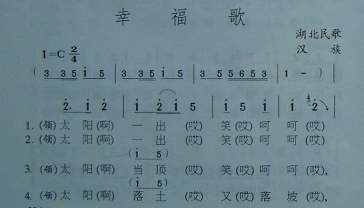 幸 福 歌
湖北民歌
汉 族
1=C 2/4
( 3 3 5 i 5 | 3 3 5 i 5 | 3 5 5653 5 | 1 - ) |
2. i 2 | i 2 i 5 | i 5 i | i 2 ,
1. (领)太 阳(啊) 一 出 (哎) 笑(哎)呵 呵(哎)
2. (领)太 阳(啊) 一 出 (哎) 笑(哎)呵 呵(哎)
( i 5 )
3. (领)太 阳(啊) 当 顶 (哎) 笑(哎)呵 呵(哎),
( i 5 )
4. (领)太 阳(啊) 落 土 (哎) 又(哎)落 坡(哎),